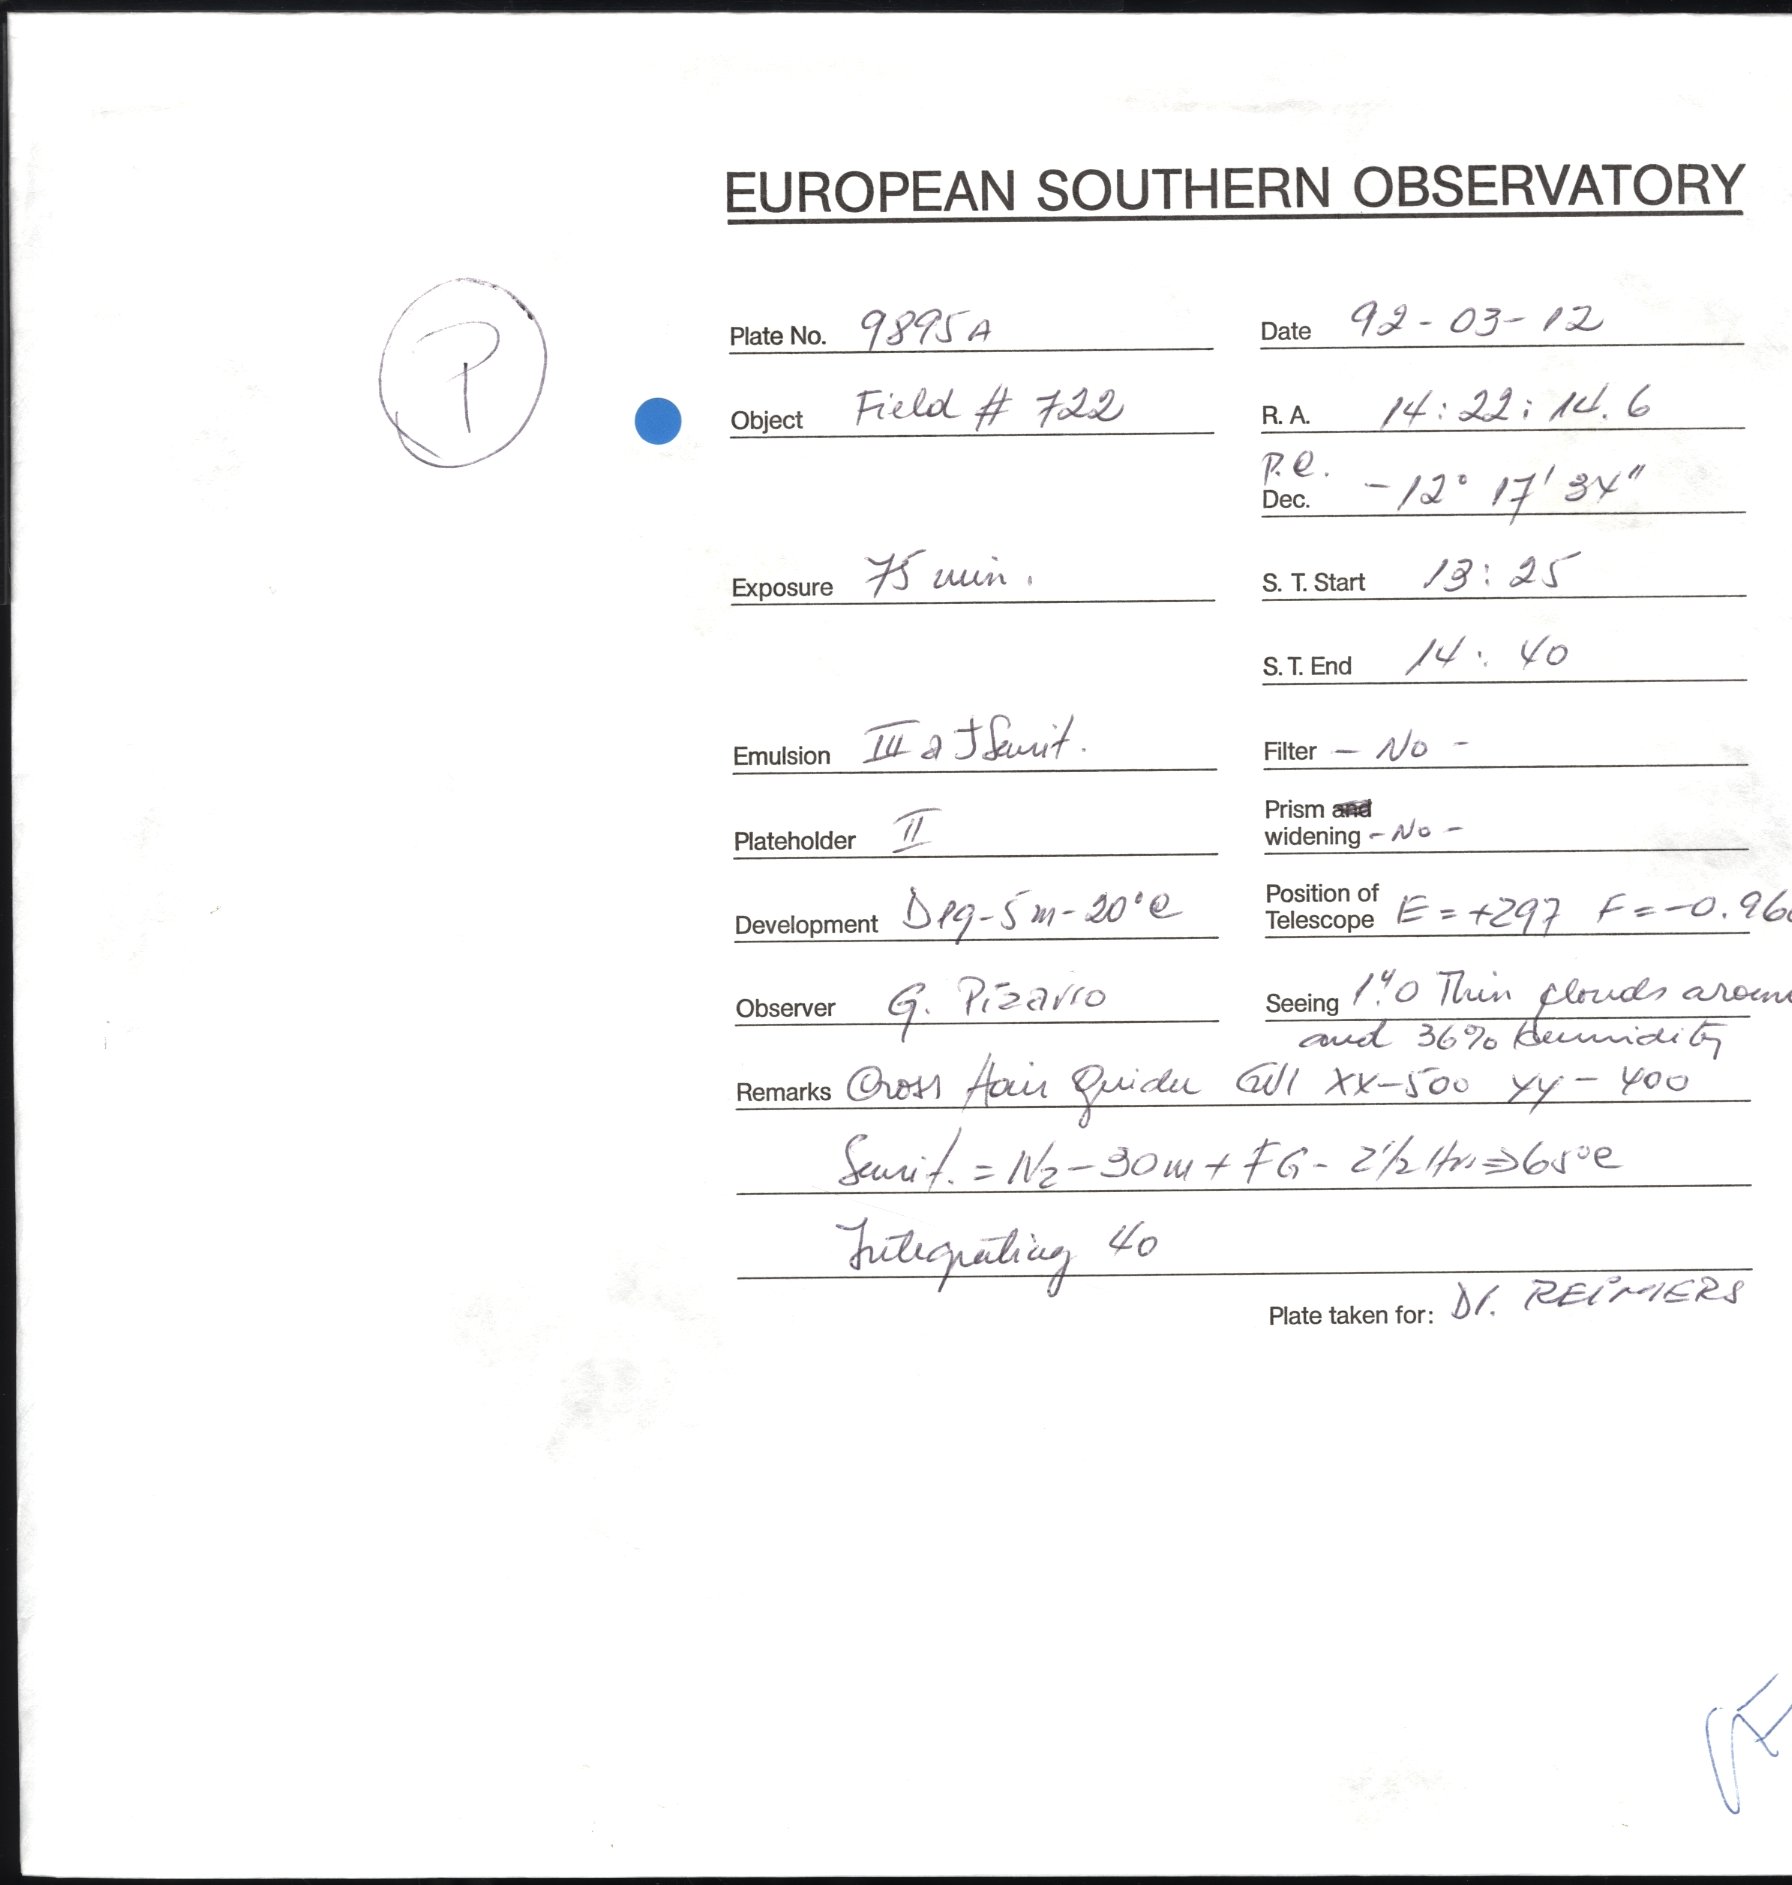 EUROPEAN SOUTHERN OBSERVATORY
P
Plate No. 9895A
Date 92-03-12
Object Field # 722
R. A. 14:22:14.6
P.C.
Dec. -12° 17' 34"
Exposure 75 min.
S. T. Start 13:25
S. T. End 14:40
Emulsion III a J Sensit.
Filter - No -
Plateholder II
Prism and
widening - No -
Development D19-5m-20°C
Position of
Telescope E=+297 F=-0.96
Observer G. Pizarro
Seeing 1".0 Thin clouds
and 36% humidity
Remarks Cross Hair Guider XX-500 YY-400
Sensit. = N2-30m + FG-2 1/2 Hrs⇒65°C
Integrating 40
Plate taken for: Dr. REIMERS